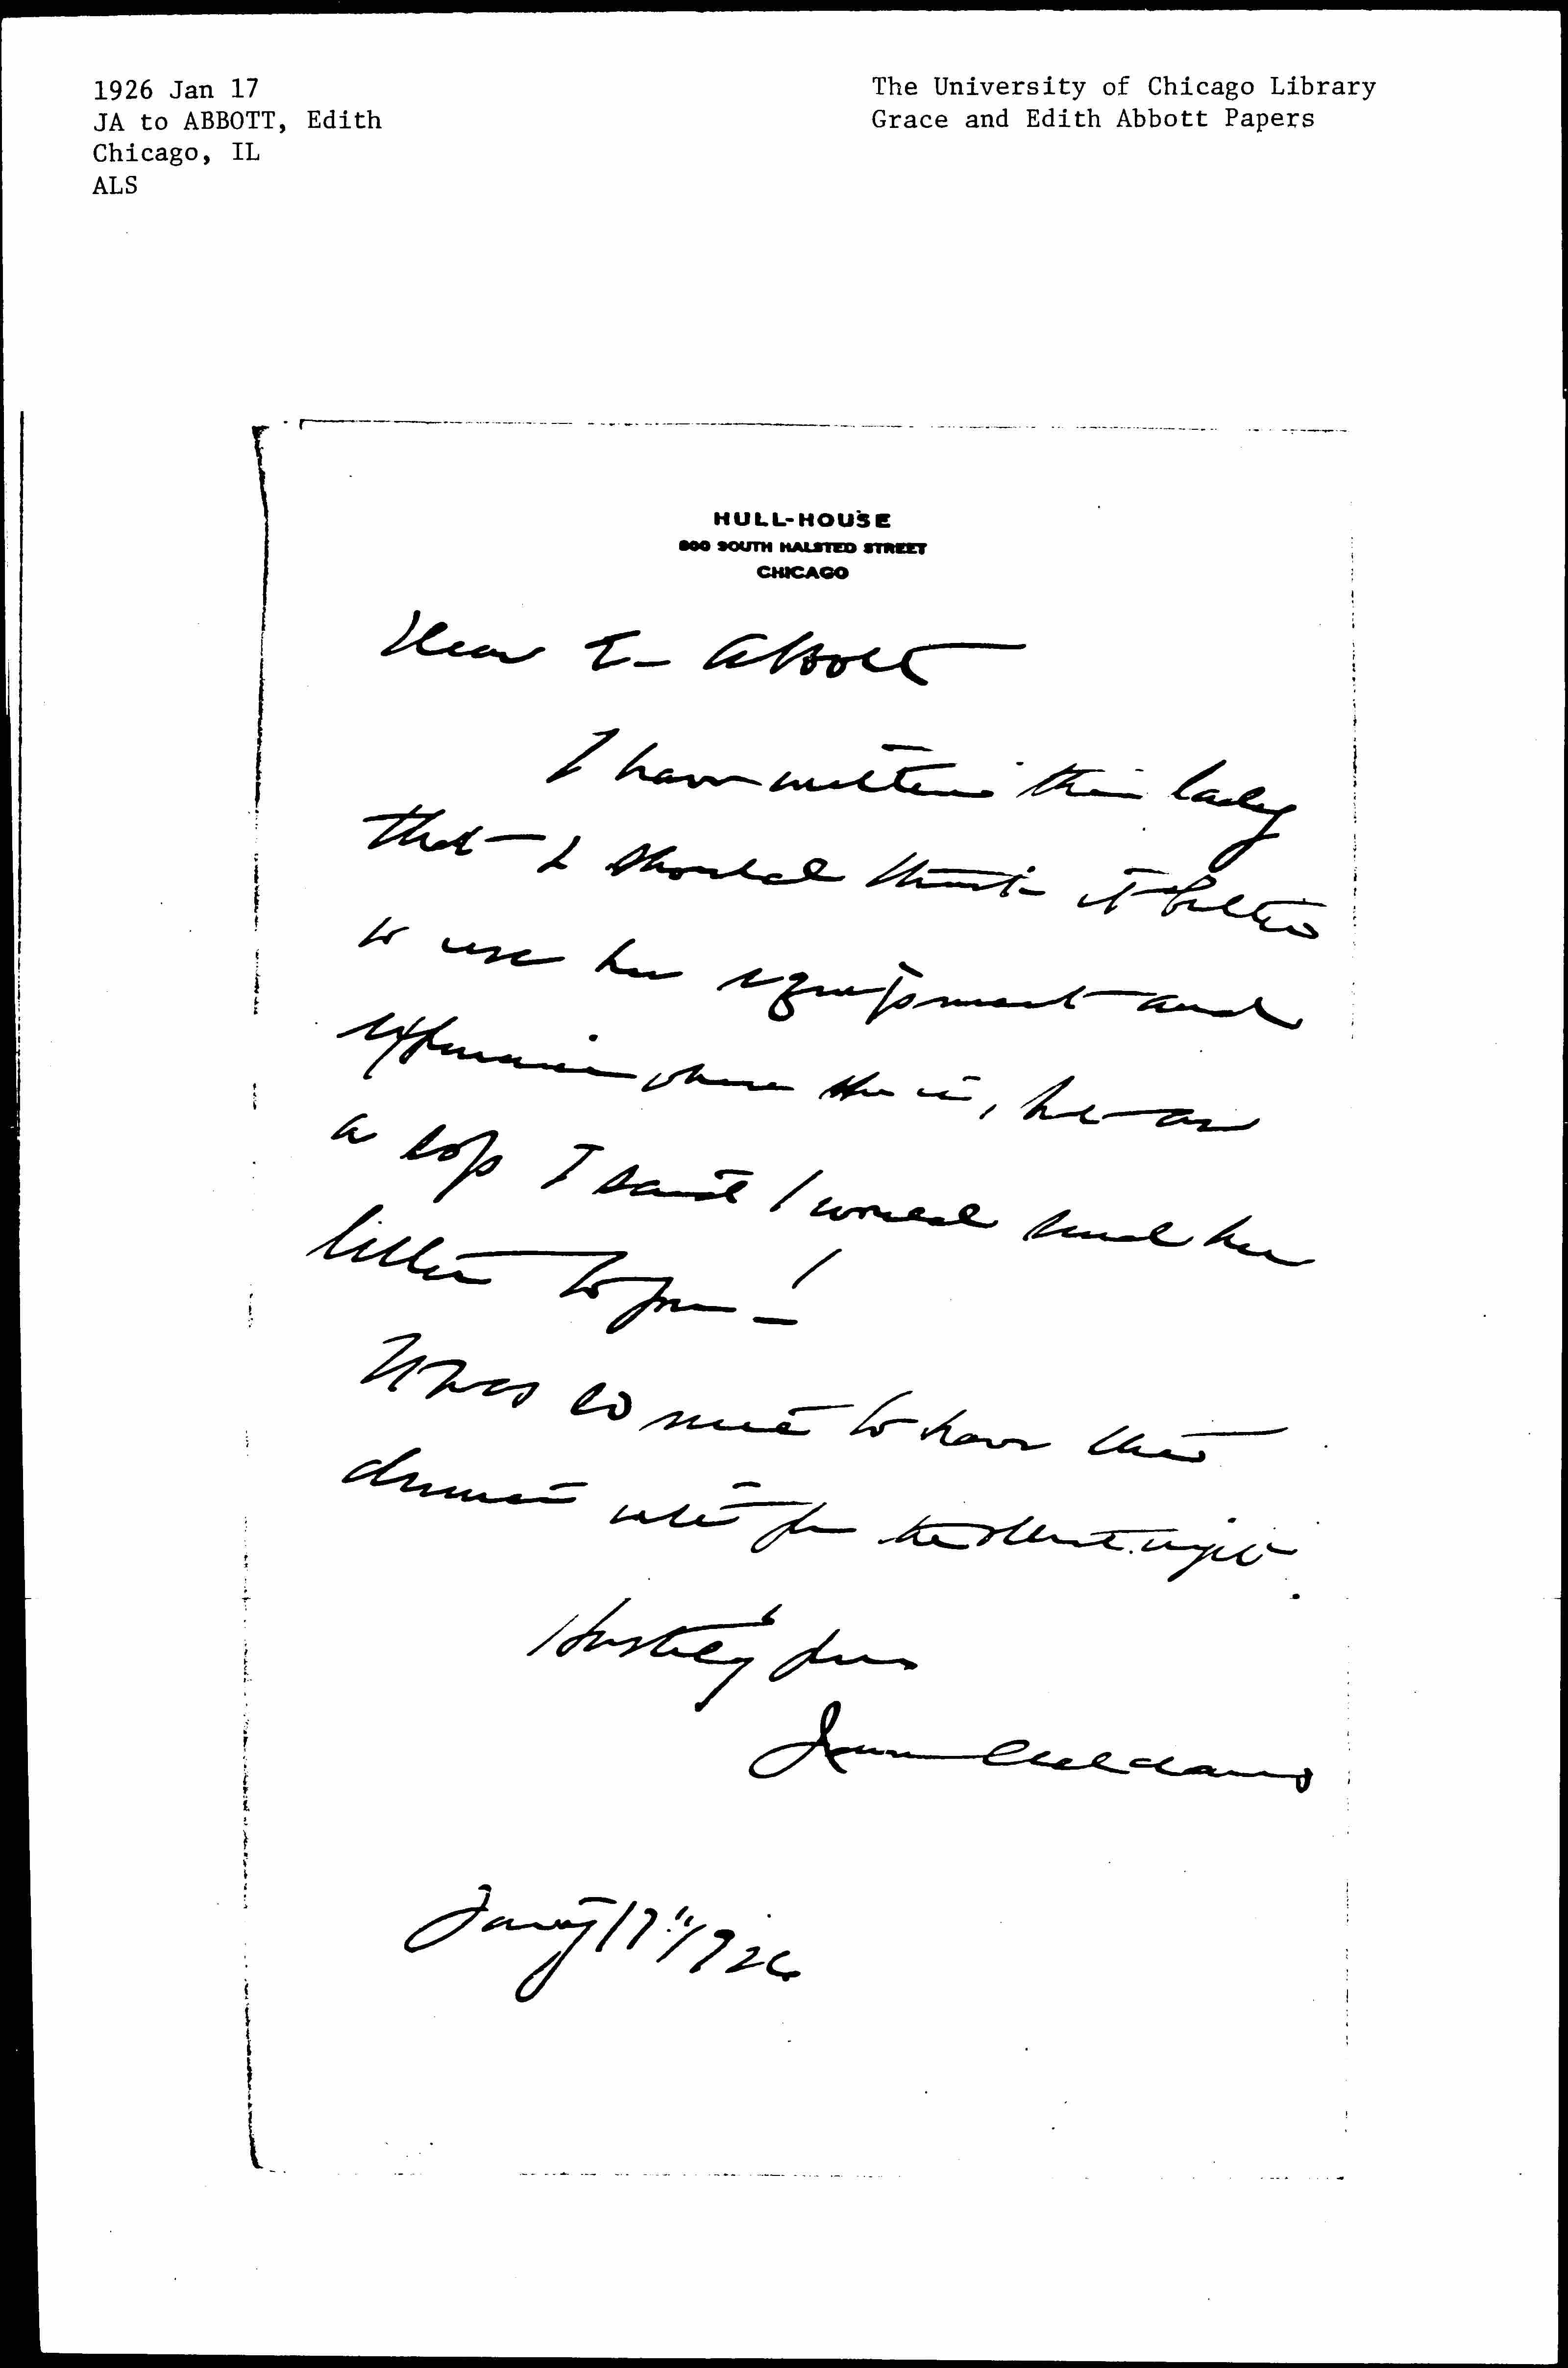 1926 Jan 17
JA to ABBOTT, Edith
Chicago, IL
ALS
The University of Chicago Library
Grace and Edith Abbott Papers
HULL-HOUSE
800 SOUTH HALSTED STREET
CHICAGO
Dear E- Abbott
I have written this lady
that I should think it better
to use her equipment and
experience where she is, but as
a sop I said I would send her
letter to you - !
It was so nice to have the
with you the other night.
yours
Jane Addams
Jan'y 17" 1926